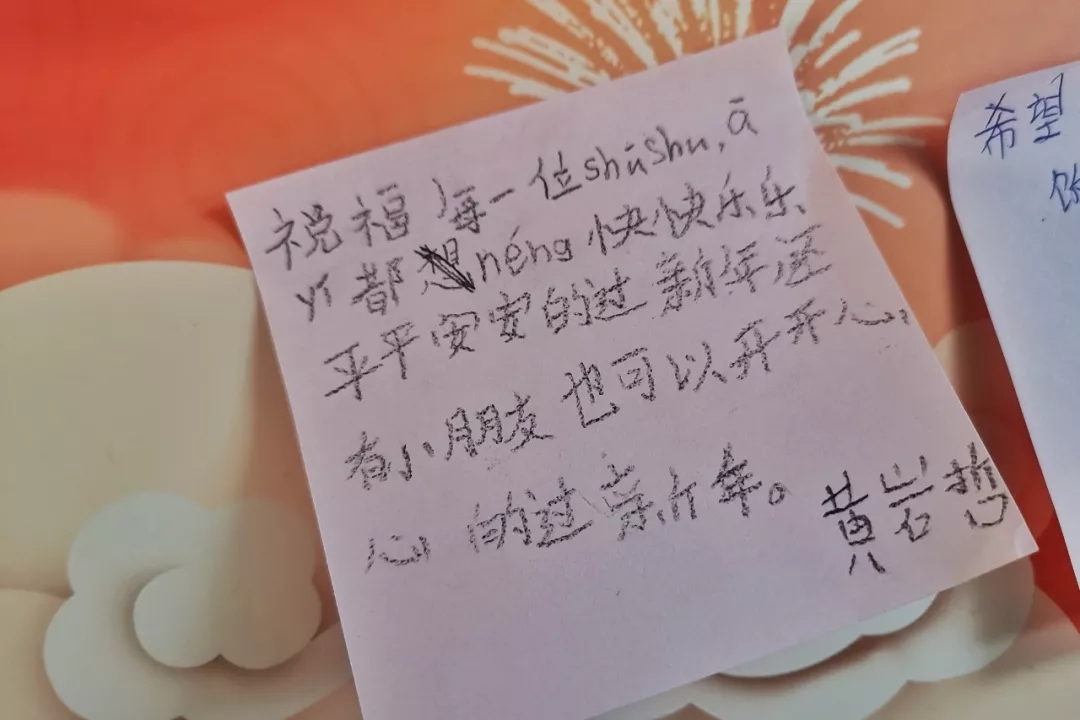 祝福每一位shūshu,ā
yí都想néng快快乐乐
平平安安的过新年还
有小朋友也可以开开心
心的过新年。
黄岩哲
希望